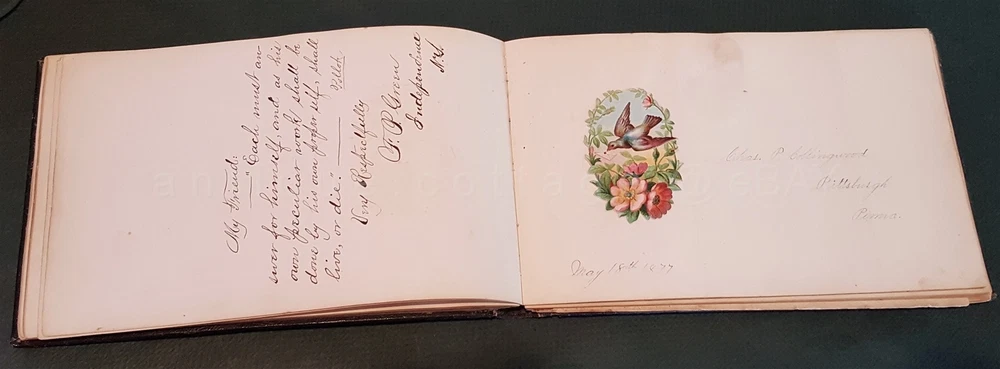 My Friend:
— "Each must an-
swer for himself, and as his
own peculiar work shall be
done by his own proper self, shall
live, or die." — Pollok.
Very Respectfully
P. Green
Independence
Chas. P. Collingwood
Pittsburgh
Penna.
May 18th 1877